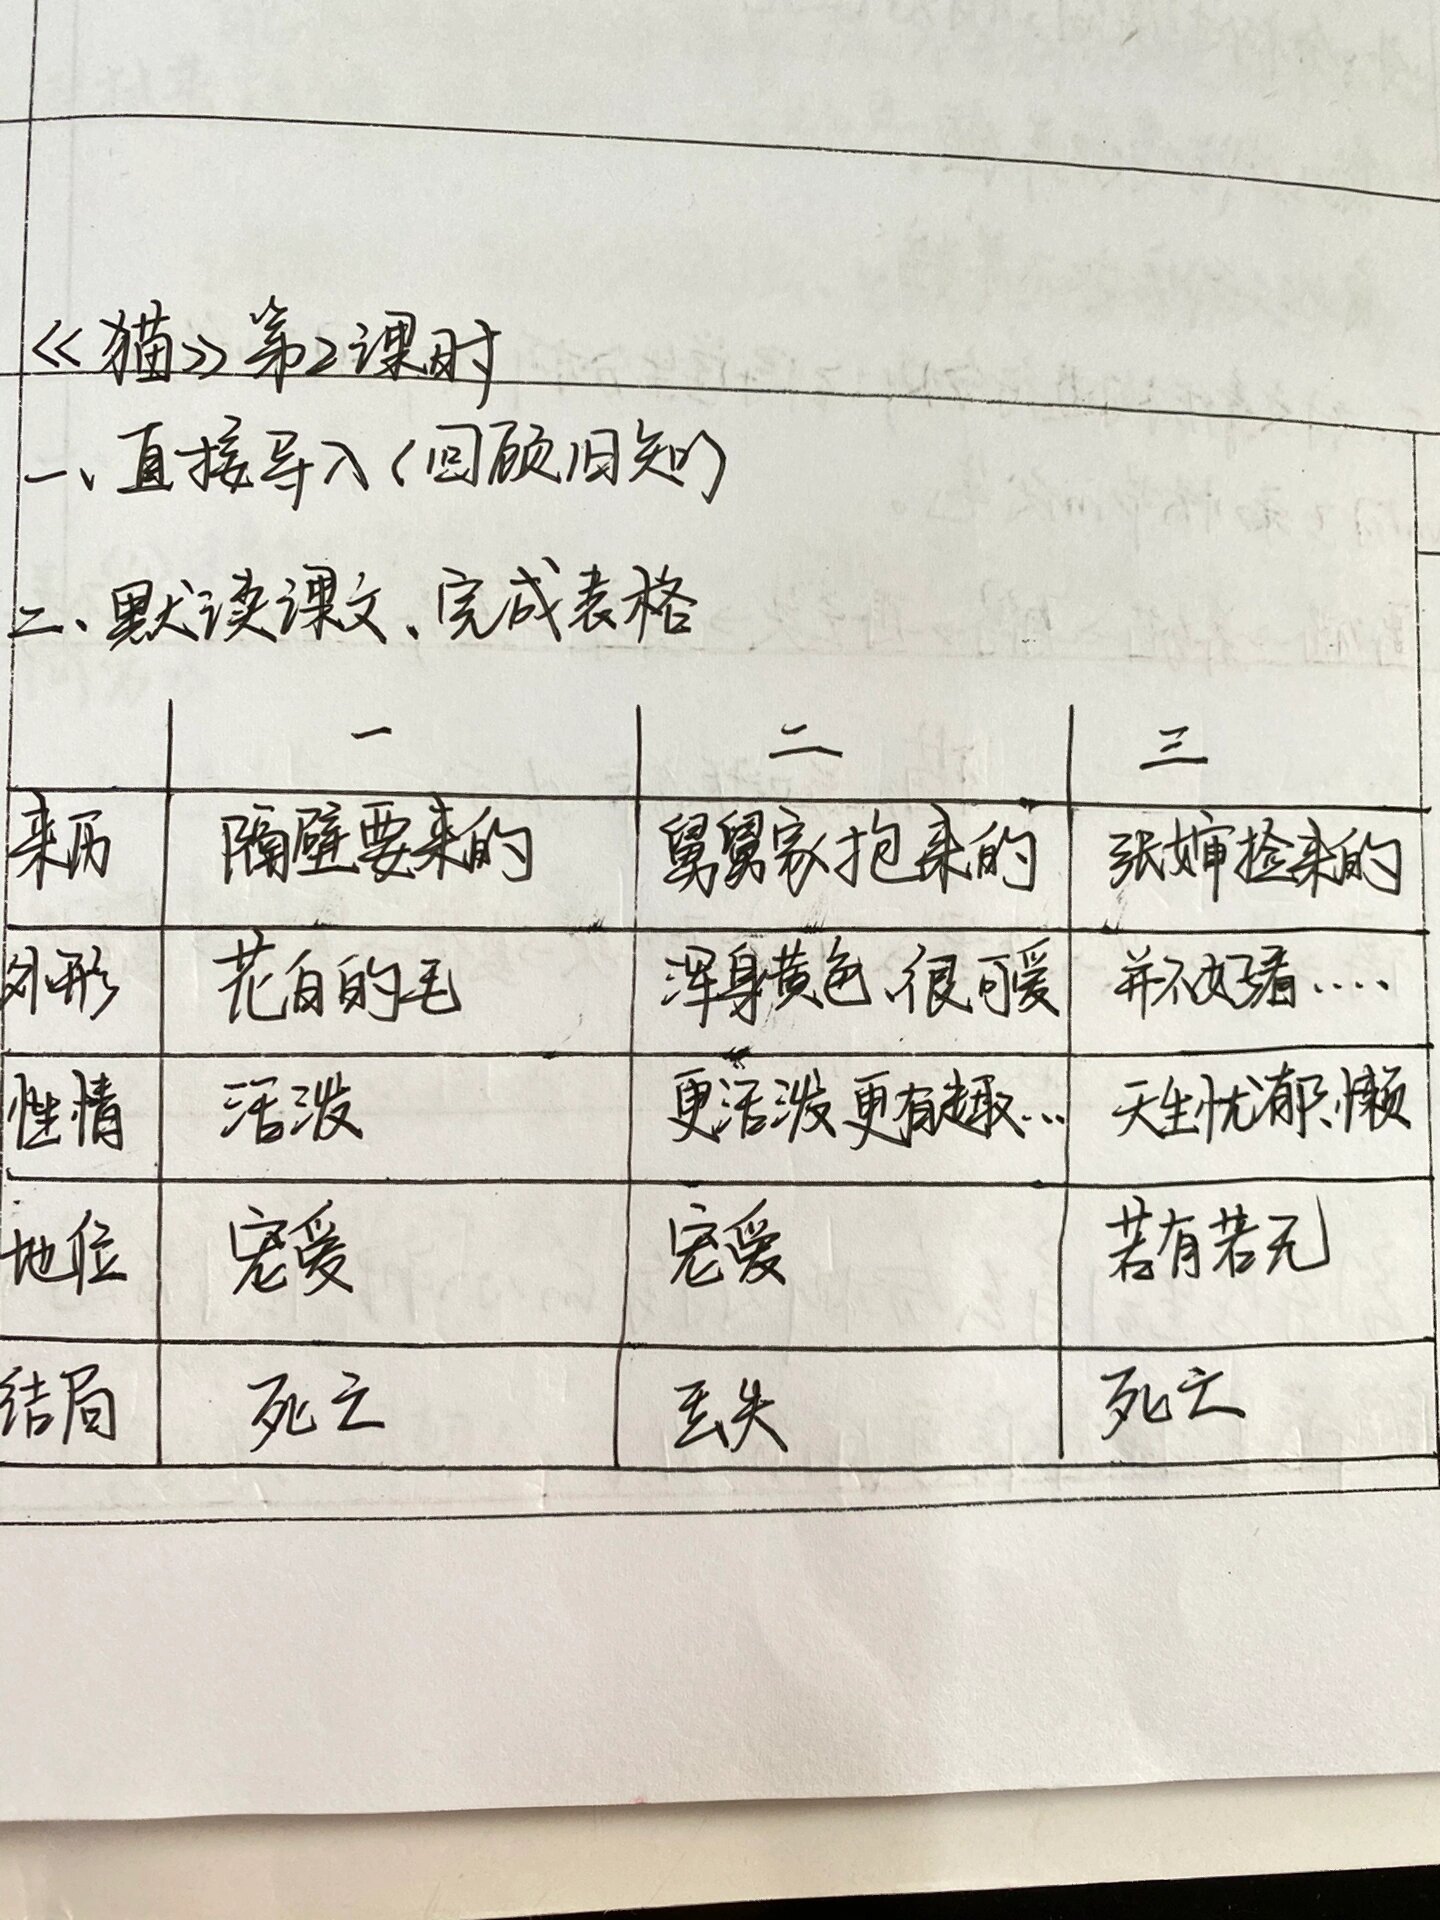 《猫》第2课时
一、直接导入(回顾旧知)
二、默读课文、完成表格
一 二 三
来历 隔壁要来的 舅舅家抱来的 张婶捡来的
外形 花白的毛 浑身黄色、很可爱 并不好看……
性情 活泼 更活泼更有趣… 天生忧郁、懒
地位 宠爱 宠爱 若有若无
结局 死亡 丢失 死亡